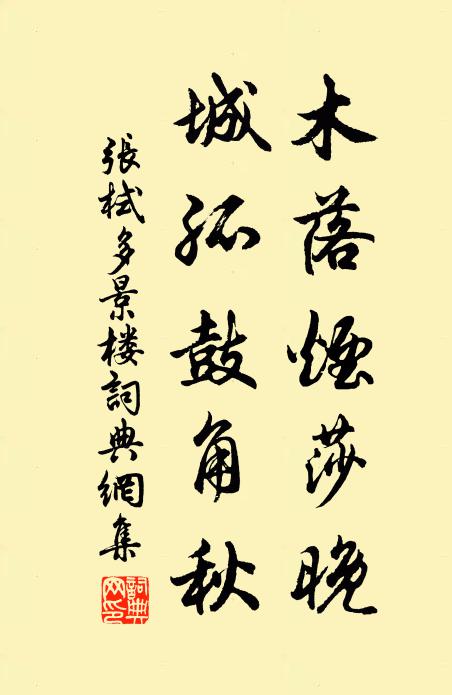 木落煙莎晚
城孤鼓角秋
張栻多景楼詞典網集
詞典
网印